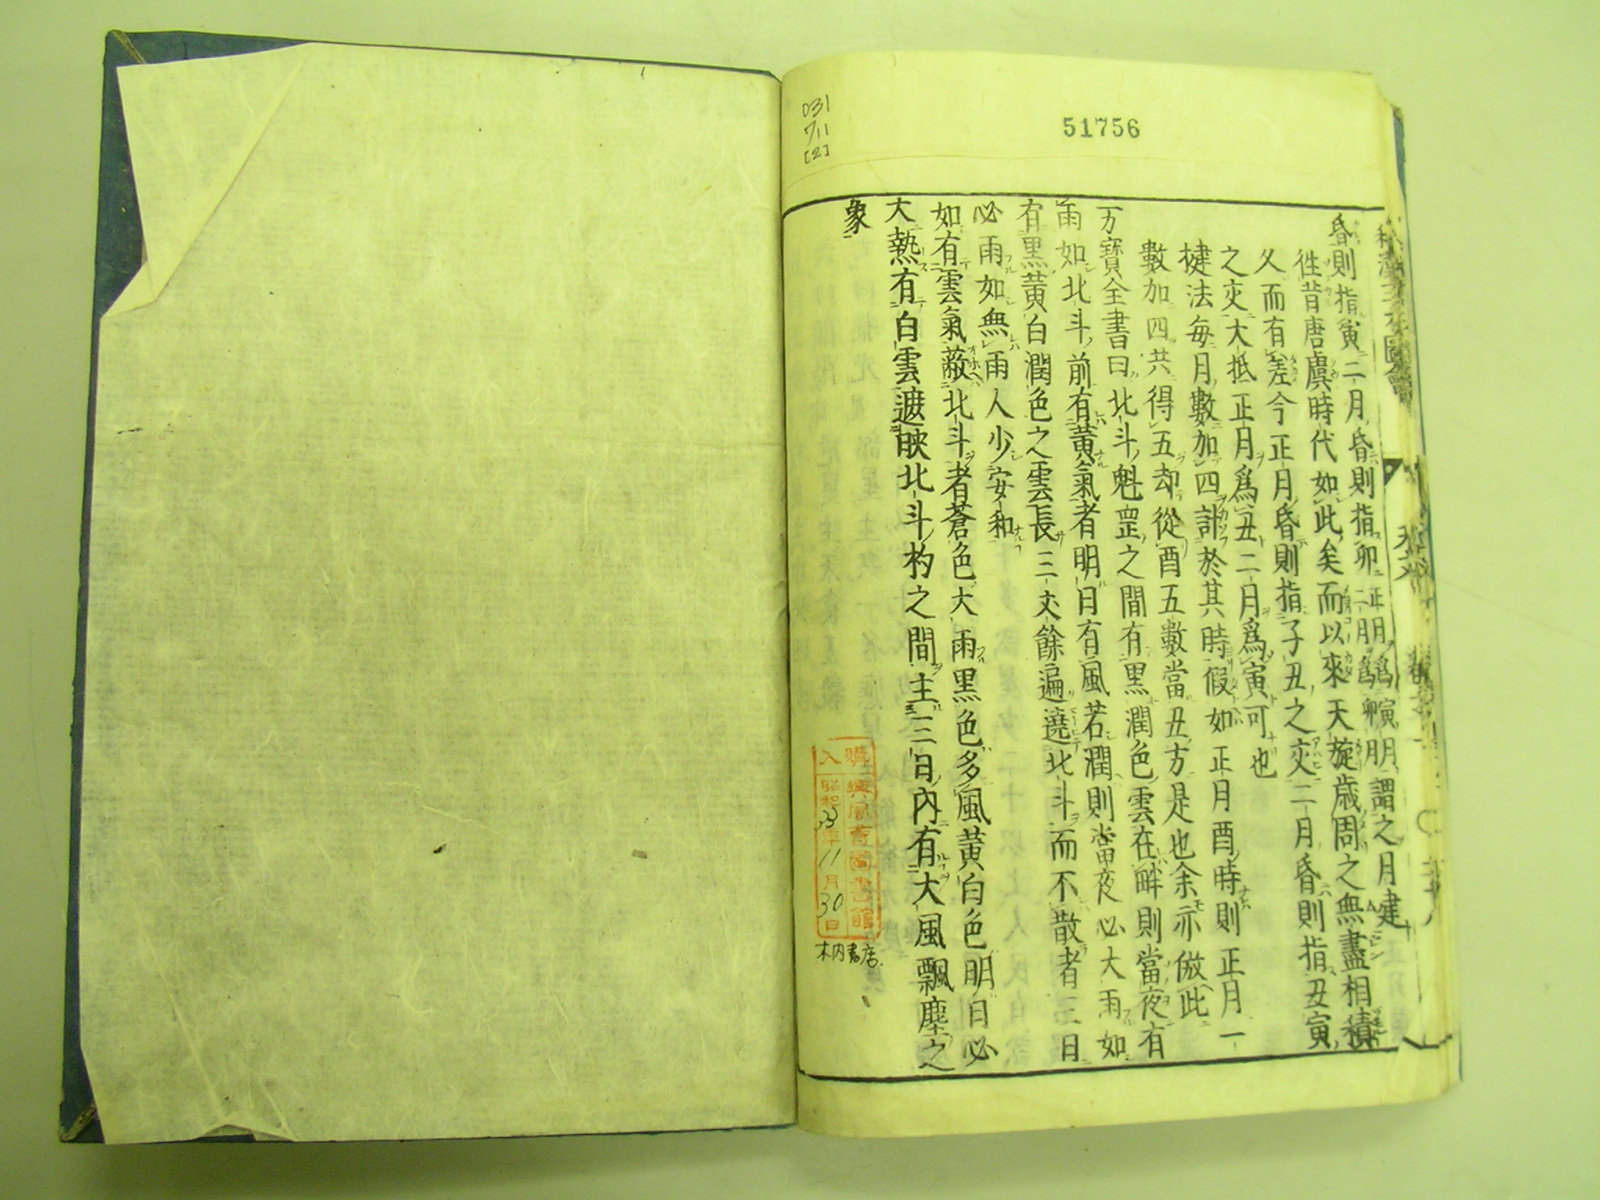 031
711
[2]
51756
昏則指寅二月昏則指卯正月爲寅二月爲卯謂之月建
徃昔唐虞時代如此矣而以來天旋歳周之無盡相積
父而有差今正月昏則指子丑之交二月昏則指丑寅
之交大抵正月爲丑二月爲寅可也
揵法毎月數加四計於其時假如正月酉時則正月一
數加四共得五却從酉五數當丑方是也余亦倣此
万寳全書曰北斗魁罡之間有黒潤色雲在畔則當夜有
雨如北斗前有黄氣者明日有風若潤則當夜必大雨如
有黒黄白潤色之雲長三丈餘遍遶北斗而不散者三日
必雨如無雨人少安和
如有雲氣蔽北斗者蒼色大雨黒色多風黄白色明日必
大熱有白雲遮映北斗杓之間主三日内有大風飄塵之
象
購入
興風會圖書館
昭和33年11月30日
木内書店